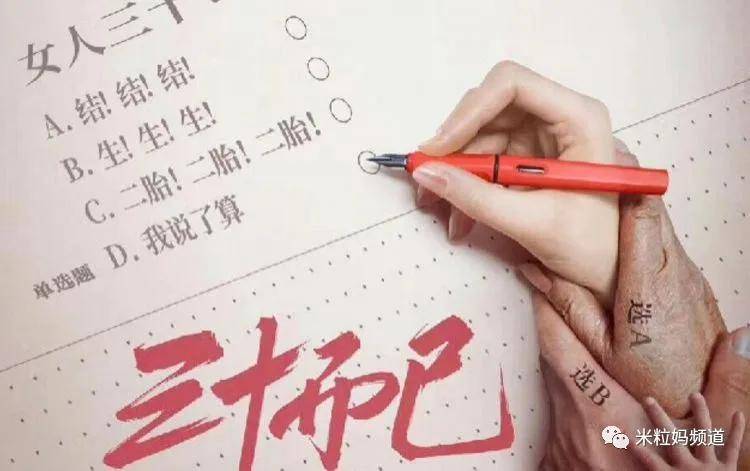 女人三十
A. 结! 结! 结!
B. 生! 生! 生!
C. 二胎! 二胎! 二胎!
单选题 D. 我说了算
三十而已
选A
选B
米粒妈频道